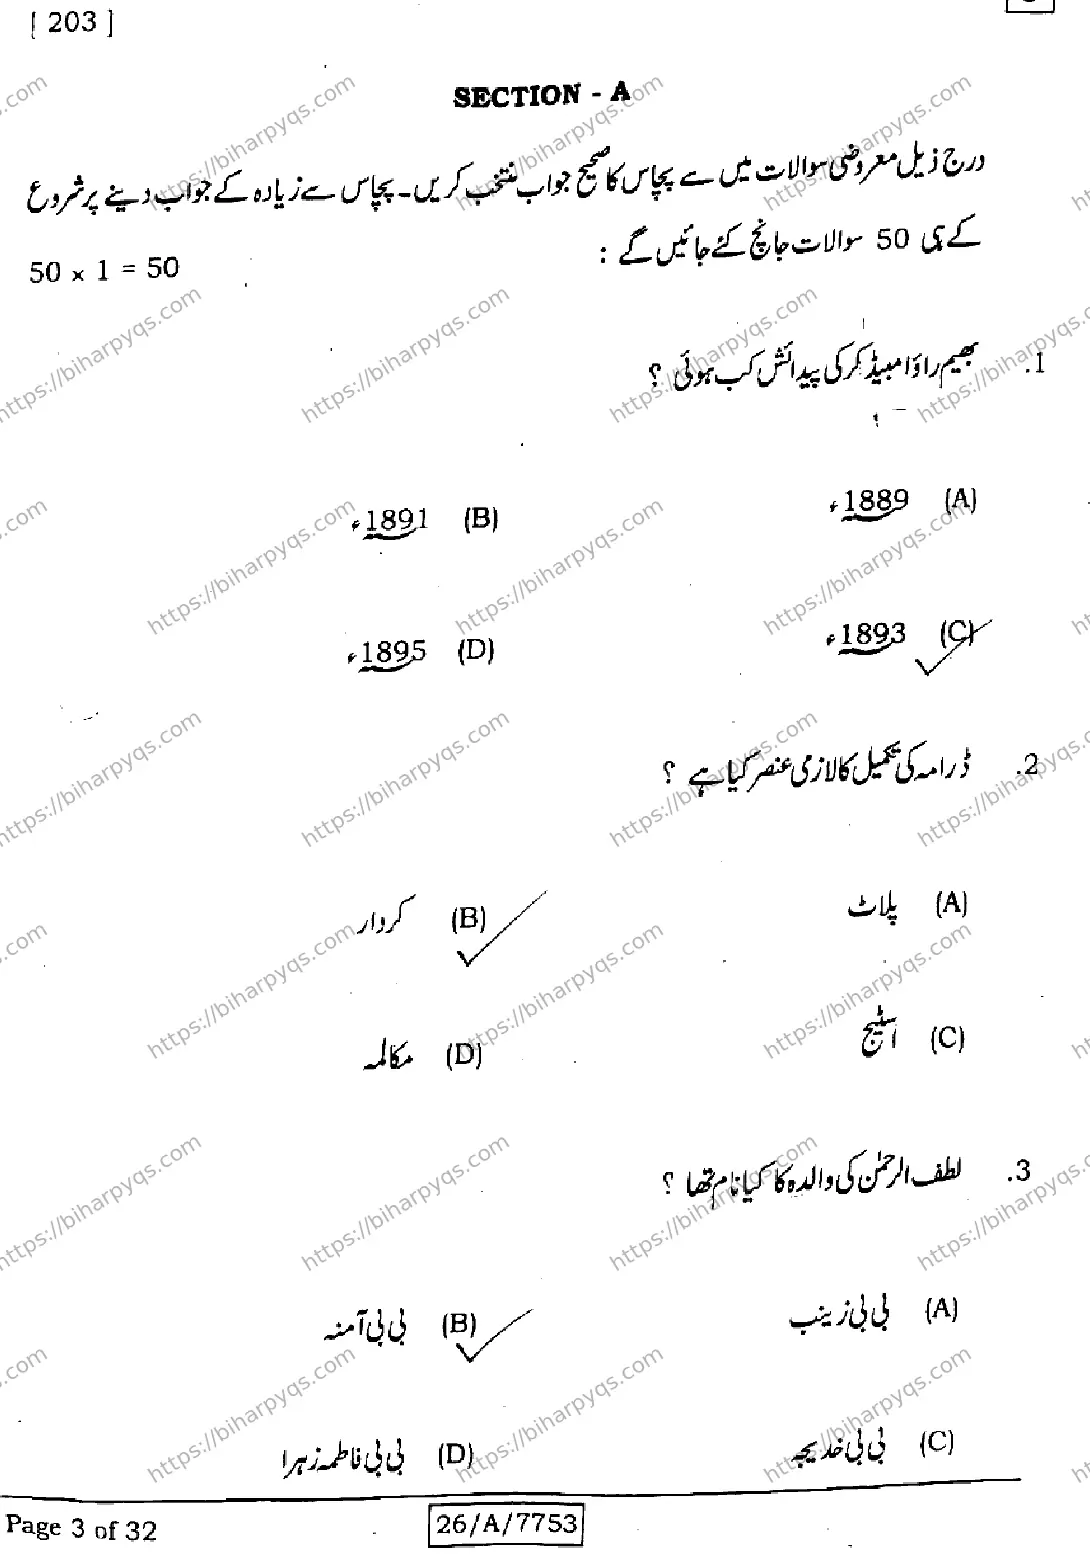 [ 203 ]
SECTION - A
درج ذیل معروضی سوالات میں سے پچاس کا صحیح جواب منتخب کریں۔ پچاس سے زیادہ کے جواب دینے پر شروع
کے ہی 50 سوالات جانچ کئے جائیں گے :
50 × 1 = 50
1. بھیم راؤ امبیڈکر کی پیدائش کب ہوئی ؟
(A) 1889ء (B) 1891ء
(C) 1893ء (D) 1895ء
2. ڈرامہ کی تکمیل کا لازمی عنصر کیا ہے ؟
(A) پلاٹ (B) کردار
(C) اسٹیج (D) مکالمہ
3. لطف الرحمٰن کی والدہ کا کیا نام تھا ؟
(A) بی بی زینب (B) بی بی آمنہ
(C) بی بی خدیجہ (D) بی بی فاطمہ زہرا
Page 3 of 32
26/A/7753
https://biharpyqs.com